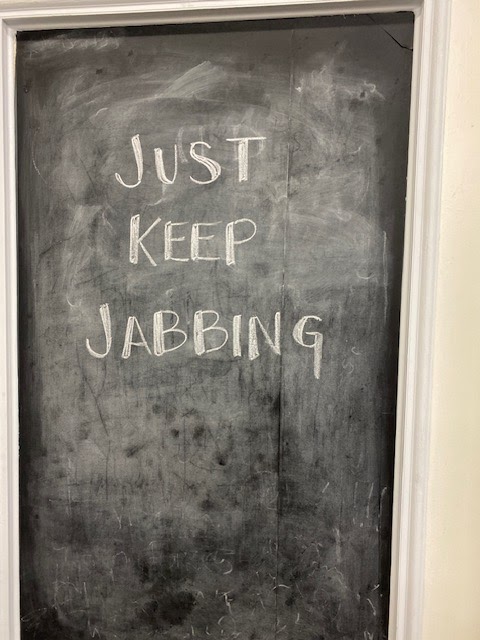 JUST
KEEP
JABBING